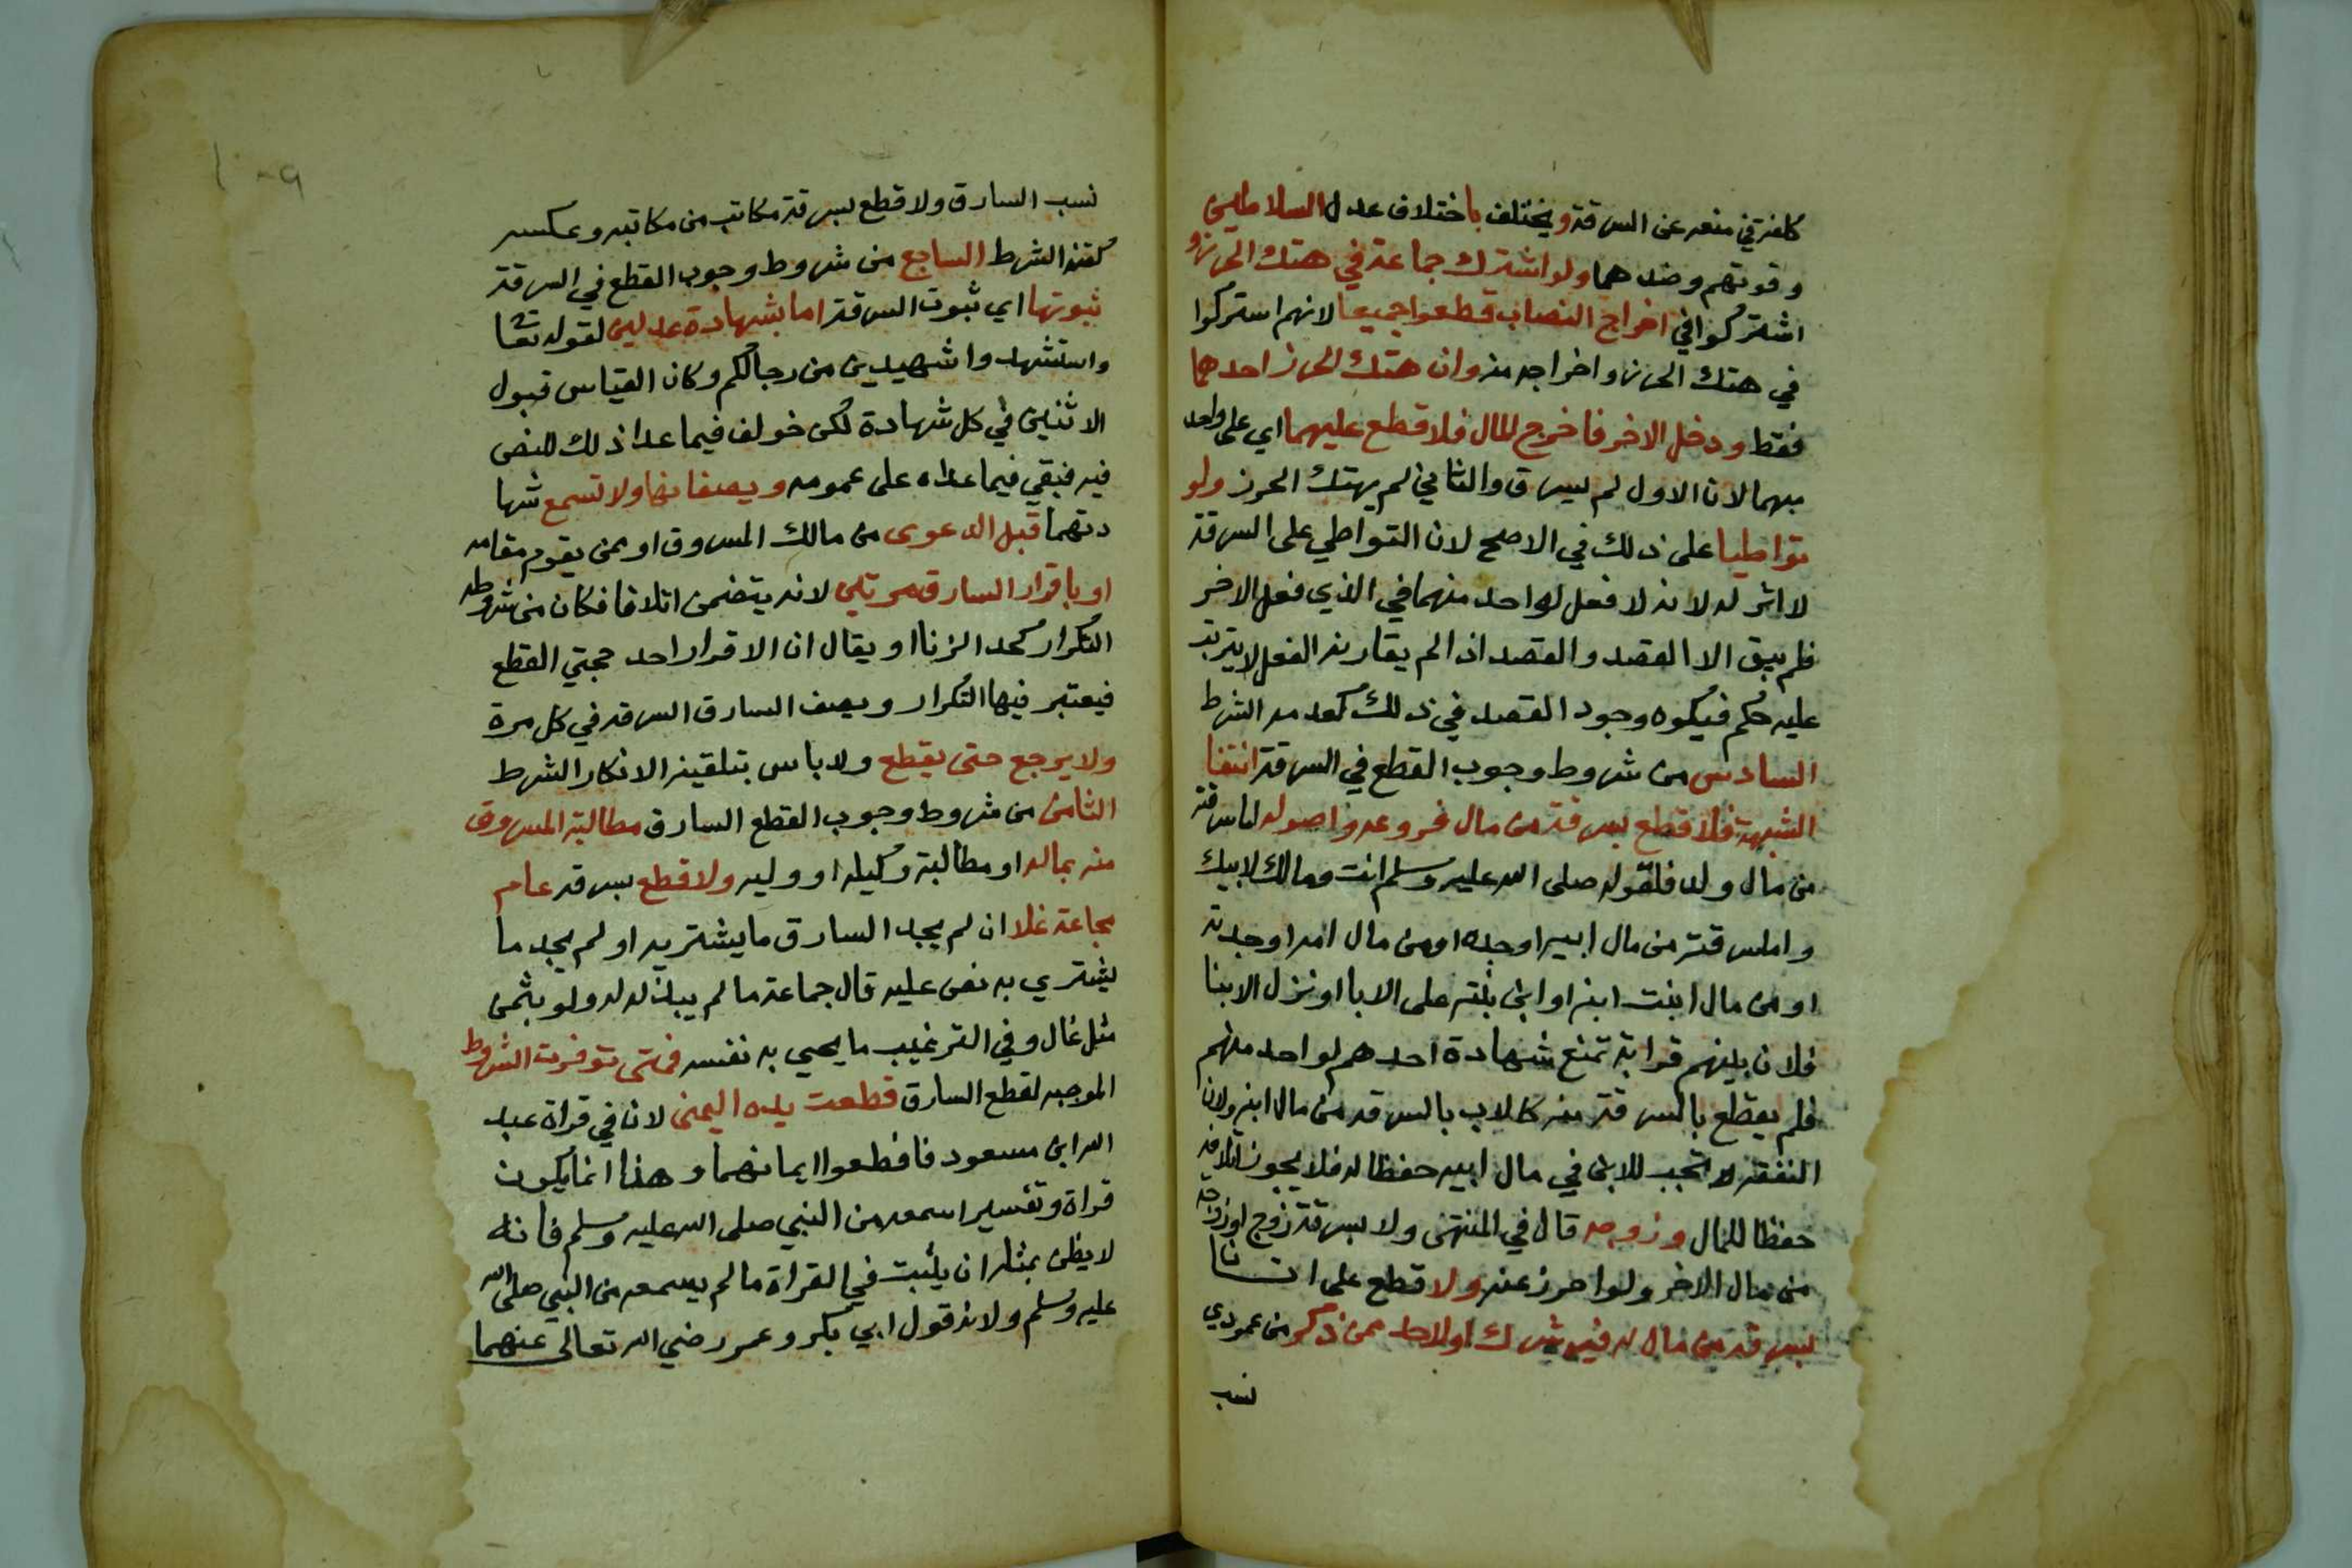 كلفته في منعه عن السرقة ويختلف باختلاف عدل السلاطين
وقوتهم وضدهما ولو اشترك جماعة في هتك الحرز و
اشتركوا في اخراج النصاب قطعوا جميعا لانهم اشتركوا
في هتك الحرز واخراجه منه وان هتك الحرز احدهما
فقط ودخل الاخر فاخرج المال فلا قطع عليهما اي على واحد
منهما لان الاول لم يسرق والثاني لم يهتك الحرز ولو
تواطيا على ذلك في الاصح لان التواطي على السرقة
لا اثر له لانه لا فعل لواحد منهما في الذي فعل الاخر
فلم يبق الا القصد والقصد اذا لم يقارنه الفعل لا يترتب
عليه حكم فيكون وجود القصد في ذلك كعدمه الشرط
السادس من شروط وجوب القطع في السرقة انتفا
الشبهة فلا قطع بسرقة من مال فروعه واصوله اما سرقته
من مال ولده فلقوله صلى الله عليه وسلم انت ومالك لابيك
واما سرقته من مال ابيه او جده او من مال امه او جدته
او من مال ابنت ابنه او ابن بنته على الابا او نزل الابنا
فلان بينهم قرابة تمنع شهادة احدهم لواحد منهم
فلم يقطع بالسرقة منه كالاب بالسرقة من مال ابنه ولان
النفقة تجب للابن في مال ابيه حفظا له فلا يجوز اتلافه
حفظا للمال وزوجه قال في المنتهى ولا بسرقة زوج او زوجة
من مال الاخر ولو احرز عنه ولا قطع على انسانا
بسرقة من مال له فيه شرك او لاحد ممن ذكر من عمودي
نسب
١٠٩
نسب السارق ولا قطع بسرقة مكاتب من مكاتبه وعكسه
كقنه الشرط السابع من شروط وجوب القطع في السرقة
ثبوتها اي ثبوت السرقة اما بشهادة عدلين لقوله تعا
واستشهدوا شهيدين من رجالكم وكان القياس قبول
الاثنين في كل شهادة لكن خولف فيما عدا ذلك للنص
فيه فبقي فيما عداه على عمومه ويصفانها ولا تسمع شها
دتهما قبل الدعوى من مالك المسروق او ممن يقوم مقامه
او باقرار السارق مرتين لانه يتضمن اتلافا فكان من شروطه
التكرار كحد الزنا او يقال ان الاقرار احد حجتي القطع
فيعتبر فيها التكرار ويصف السارق السرقه في كل مرة
ولا يرجع حتى يقطع ولا باس بتلقينه الانكار الشرط
الثامن من شروط وجوب القطع السارق مطالبة المسروق
منه بماله او مطالبة وكيله او وليه ولا قطع بسرقه عام
مجاعة غلا ان لم يجد السارق ما يشتريه او لم يجد ما
يشتري به نص عليه قال جماعة ما لم يبذله له ولو بثمن
مثل غال وفي الترغيب ما يحيي به نفسه فمتى توفرت الشروط
الموجبه لقطع السارق قطعت يده اليمنى لان في قراة عبد
الله ابن مسعود فاقطعوا ايمانهما وهذا انما يكون
قراة وتفسيرا سمعه من النبي صلى الله عليه وسلم فانه
لا يظن بمثله ان يثبت في القراة ما لم يسمعه من النبي صلى الله
عليه وسلم ولانه قول ابي بكر وعمر رضي الله تعالى عنهما